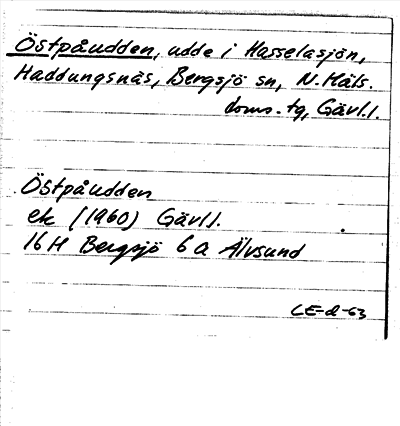 Östpåudden, udde i Hasselasjön,
Haddungsnäs, Bergsjö sn, N. Häls.
doms. tg, Gävl.l.
Östpåudden
ek (1960) Gävl.l.
16 H Bergsjö 6 a Älvsund
CE-d-63